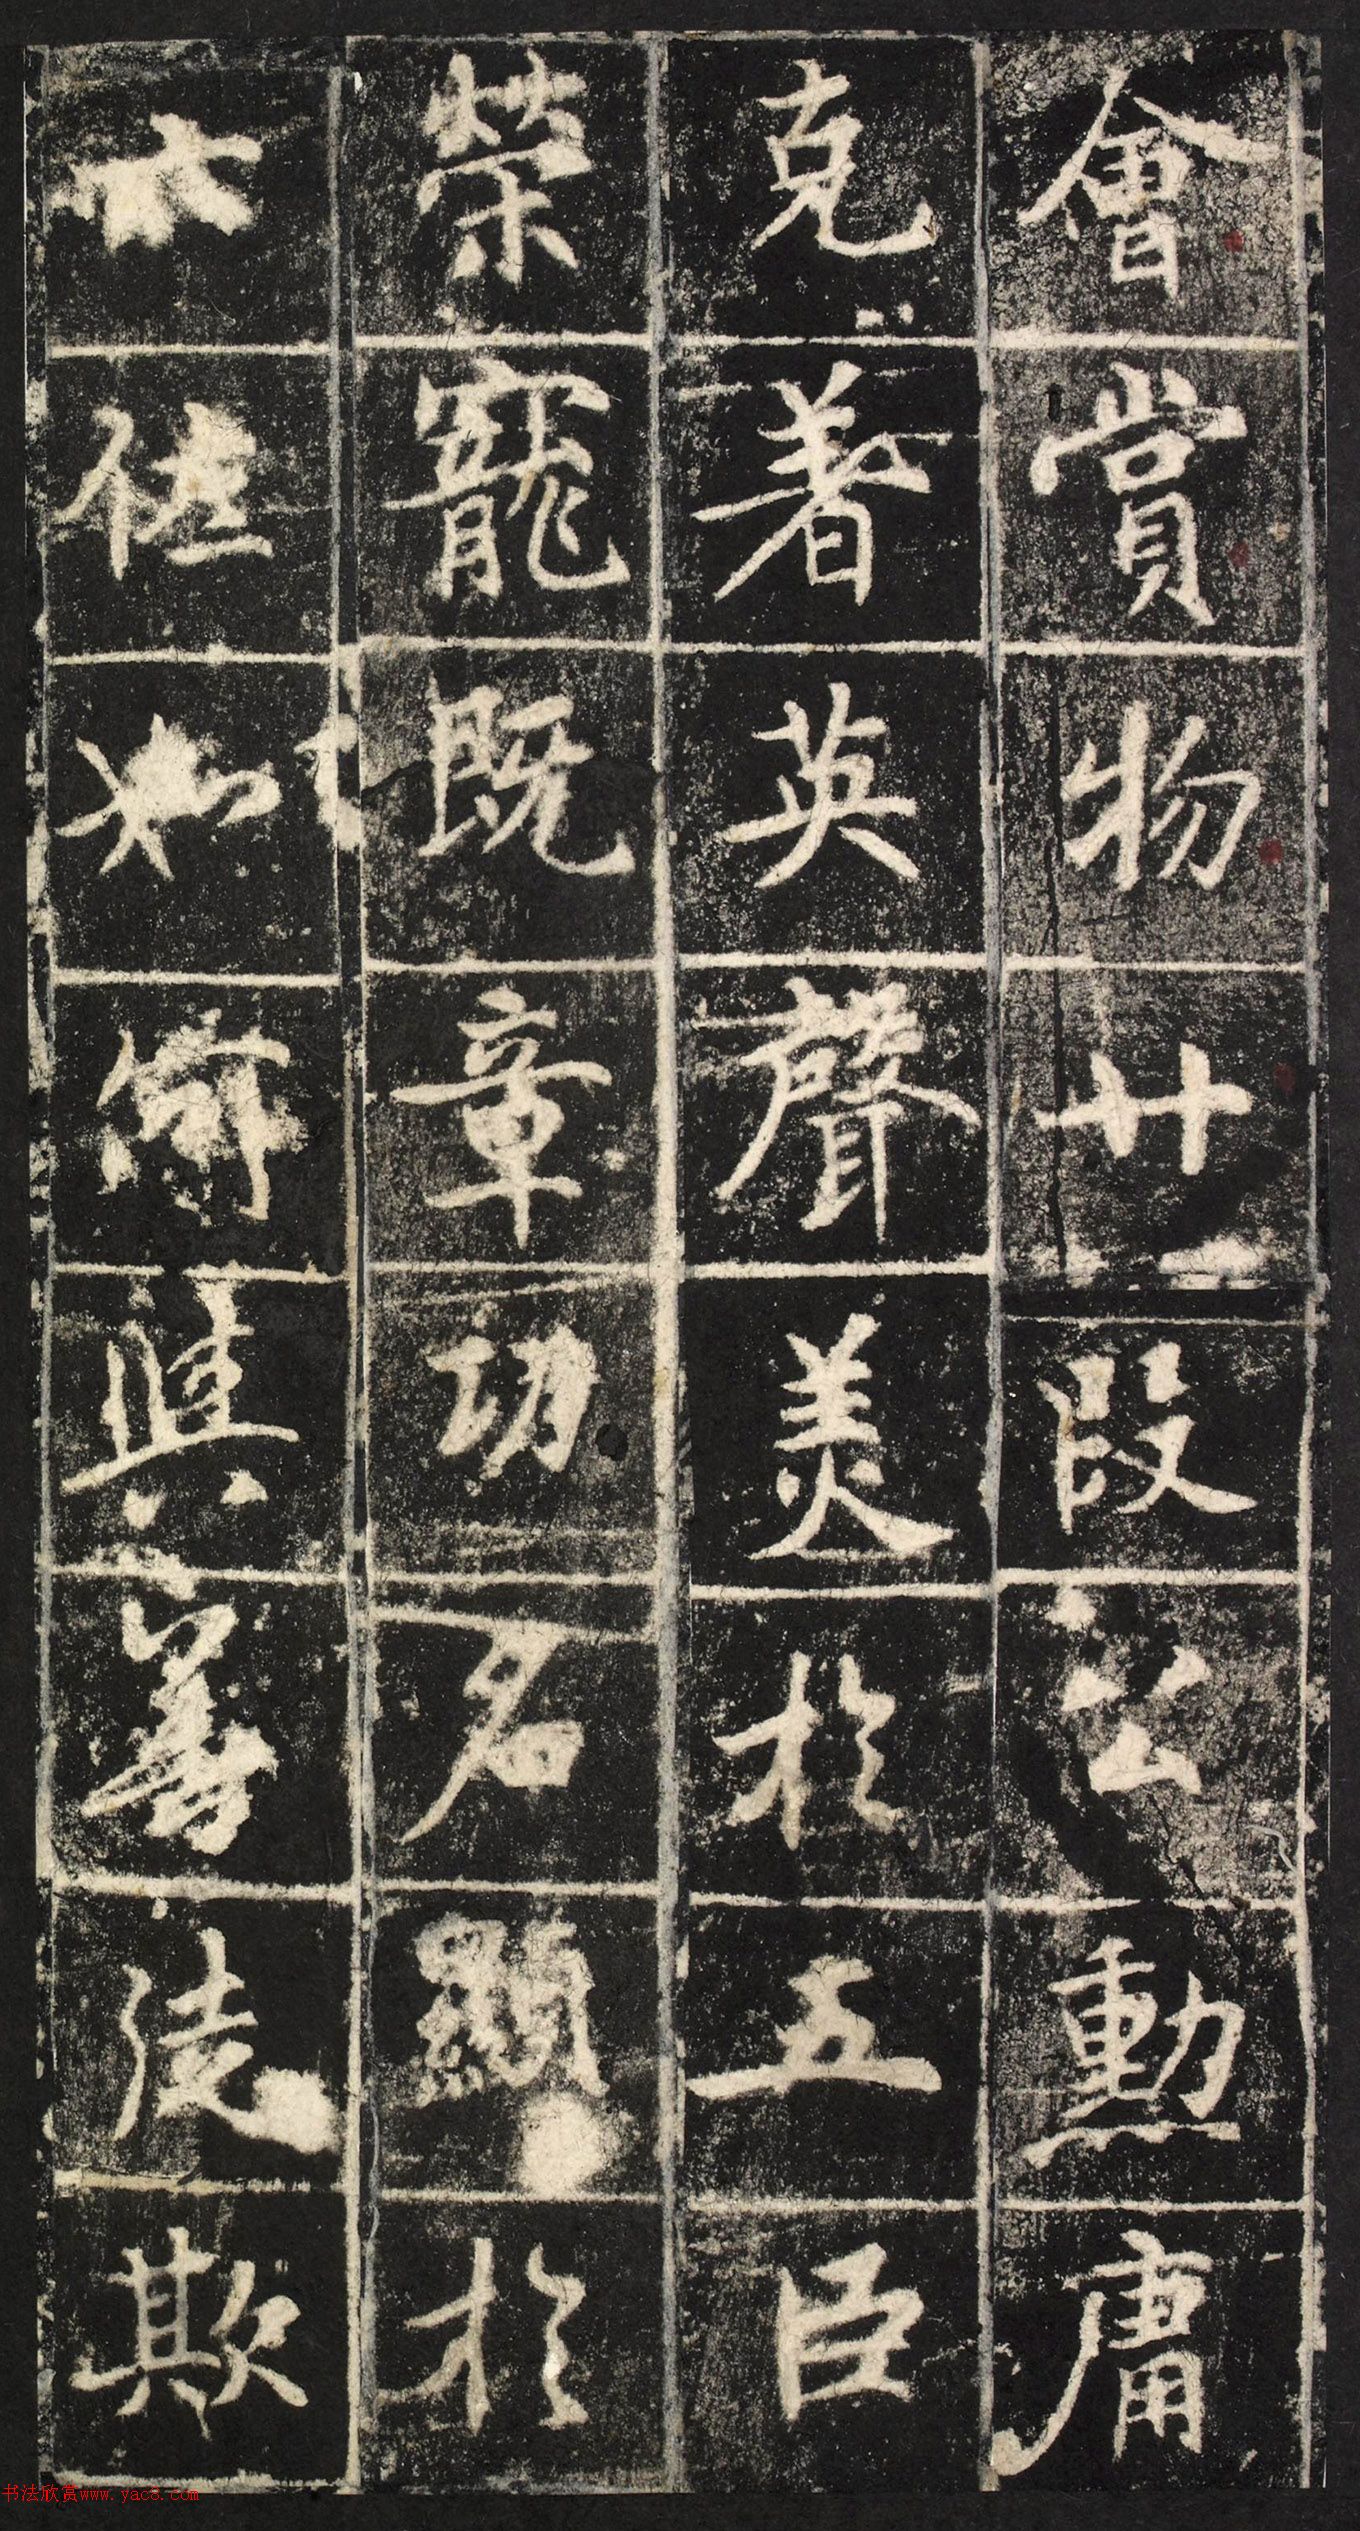 會賞物廿段公勳庸
克著英聲美於五臣
榮寵既章功名顯於
大位如俯真善徒欺
书法欣赏www.yac8.com